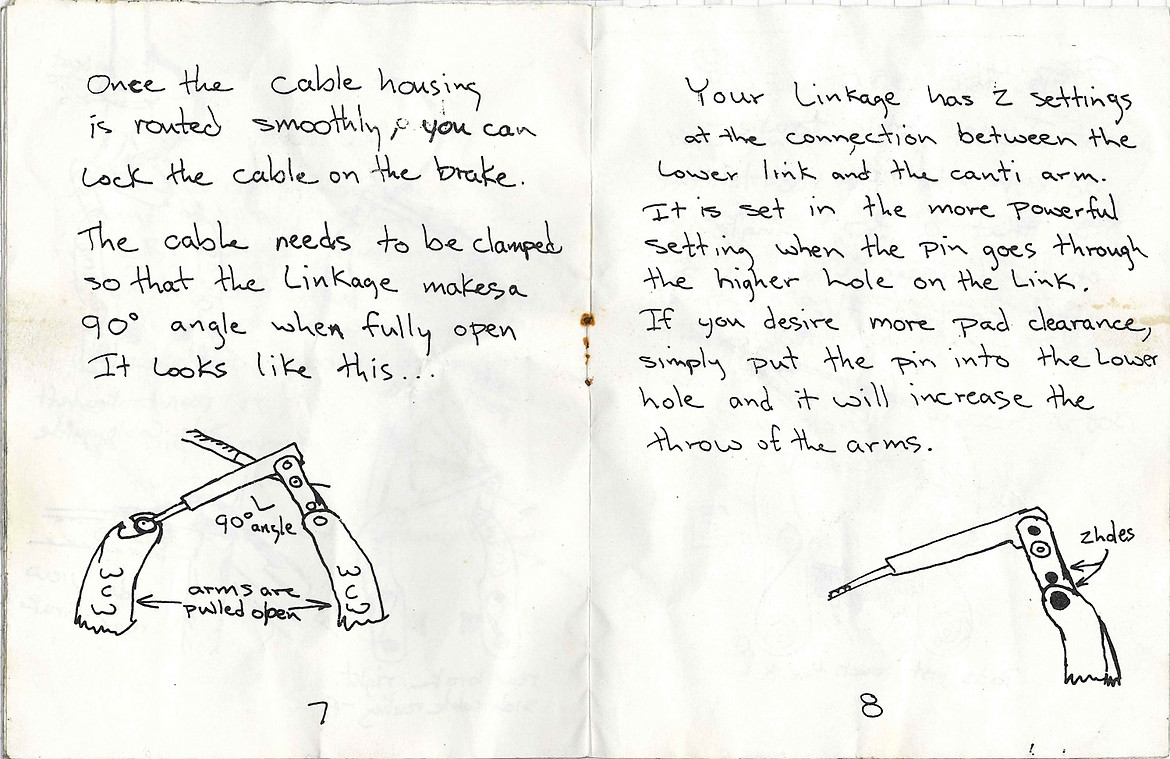 Once the cable housing
is routed smoothly, you can
Lock the cable on the brake.
The cable needs to be clamped
so that the Linkage makes a
90° angle when fully open
It Looks like this...
90° angle
arms are
pulled open
WCW
WCW
7
Your Linkage has 2 settings
at the connection between the
Lower link and the canti arm.
It is set in the more powerful
setting when the pin goes through
the higher hole on the Link.
If you desire more pad clearance,
simply put the pin into the Lower
hole and it will increase the
throw of the arms.
2 holes
8